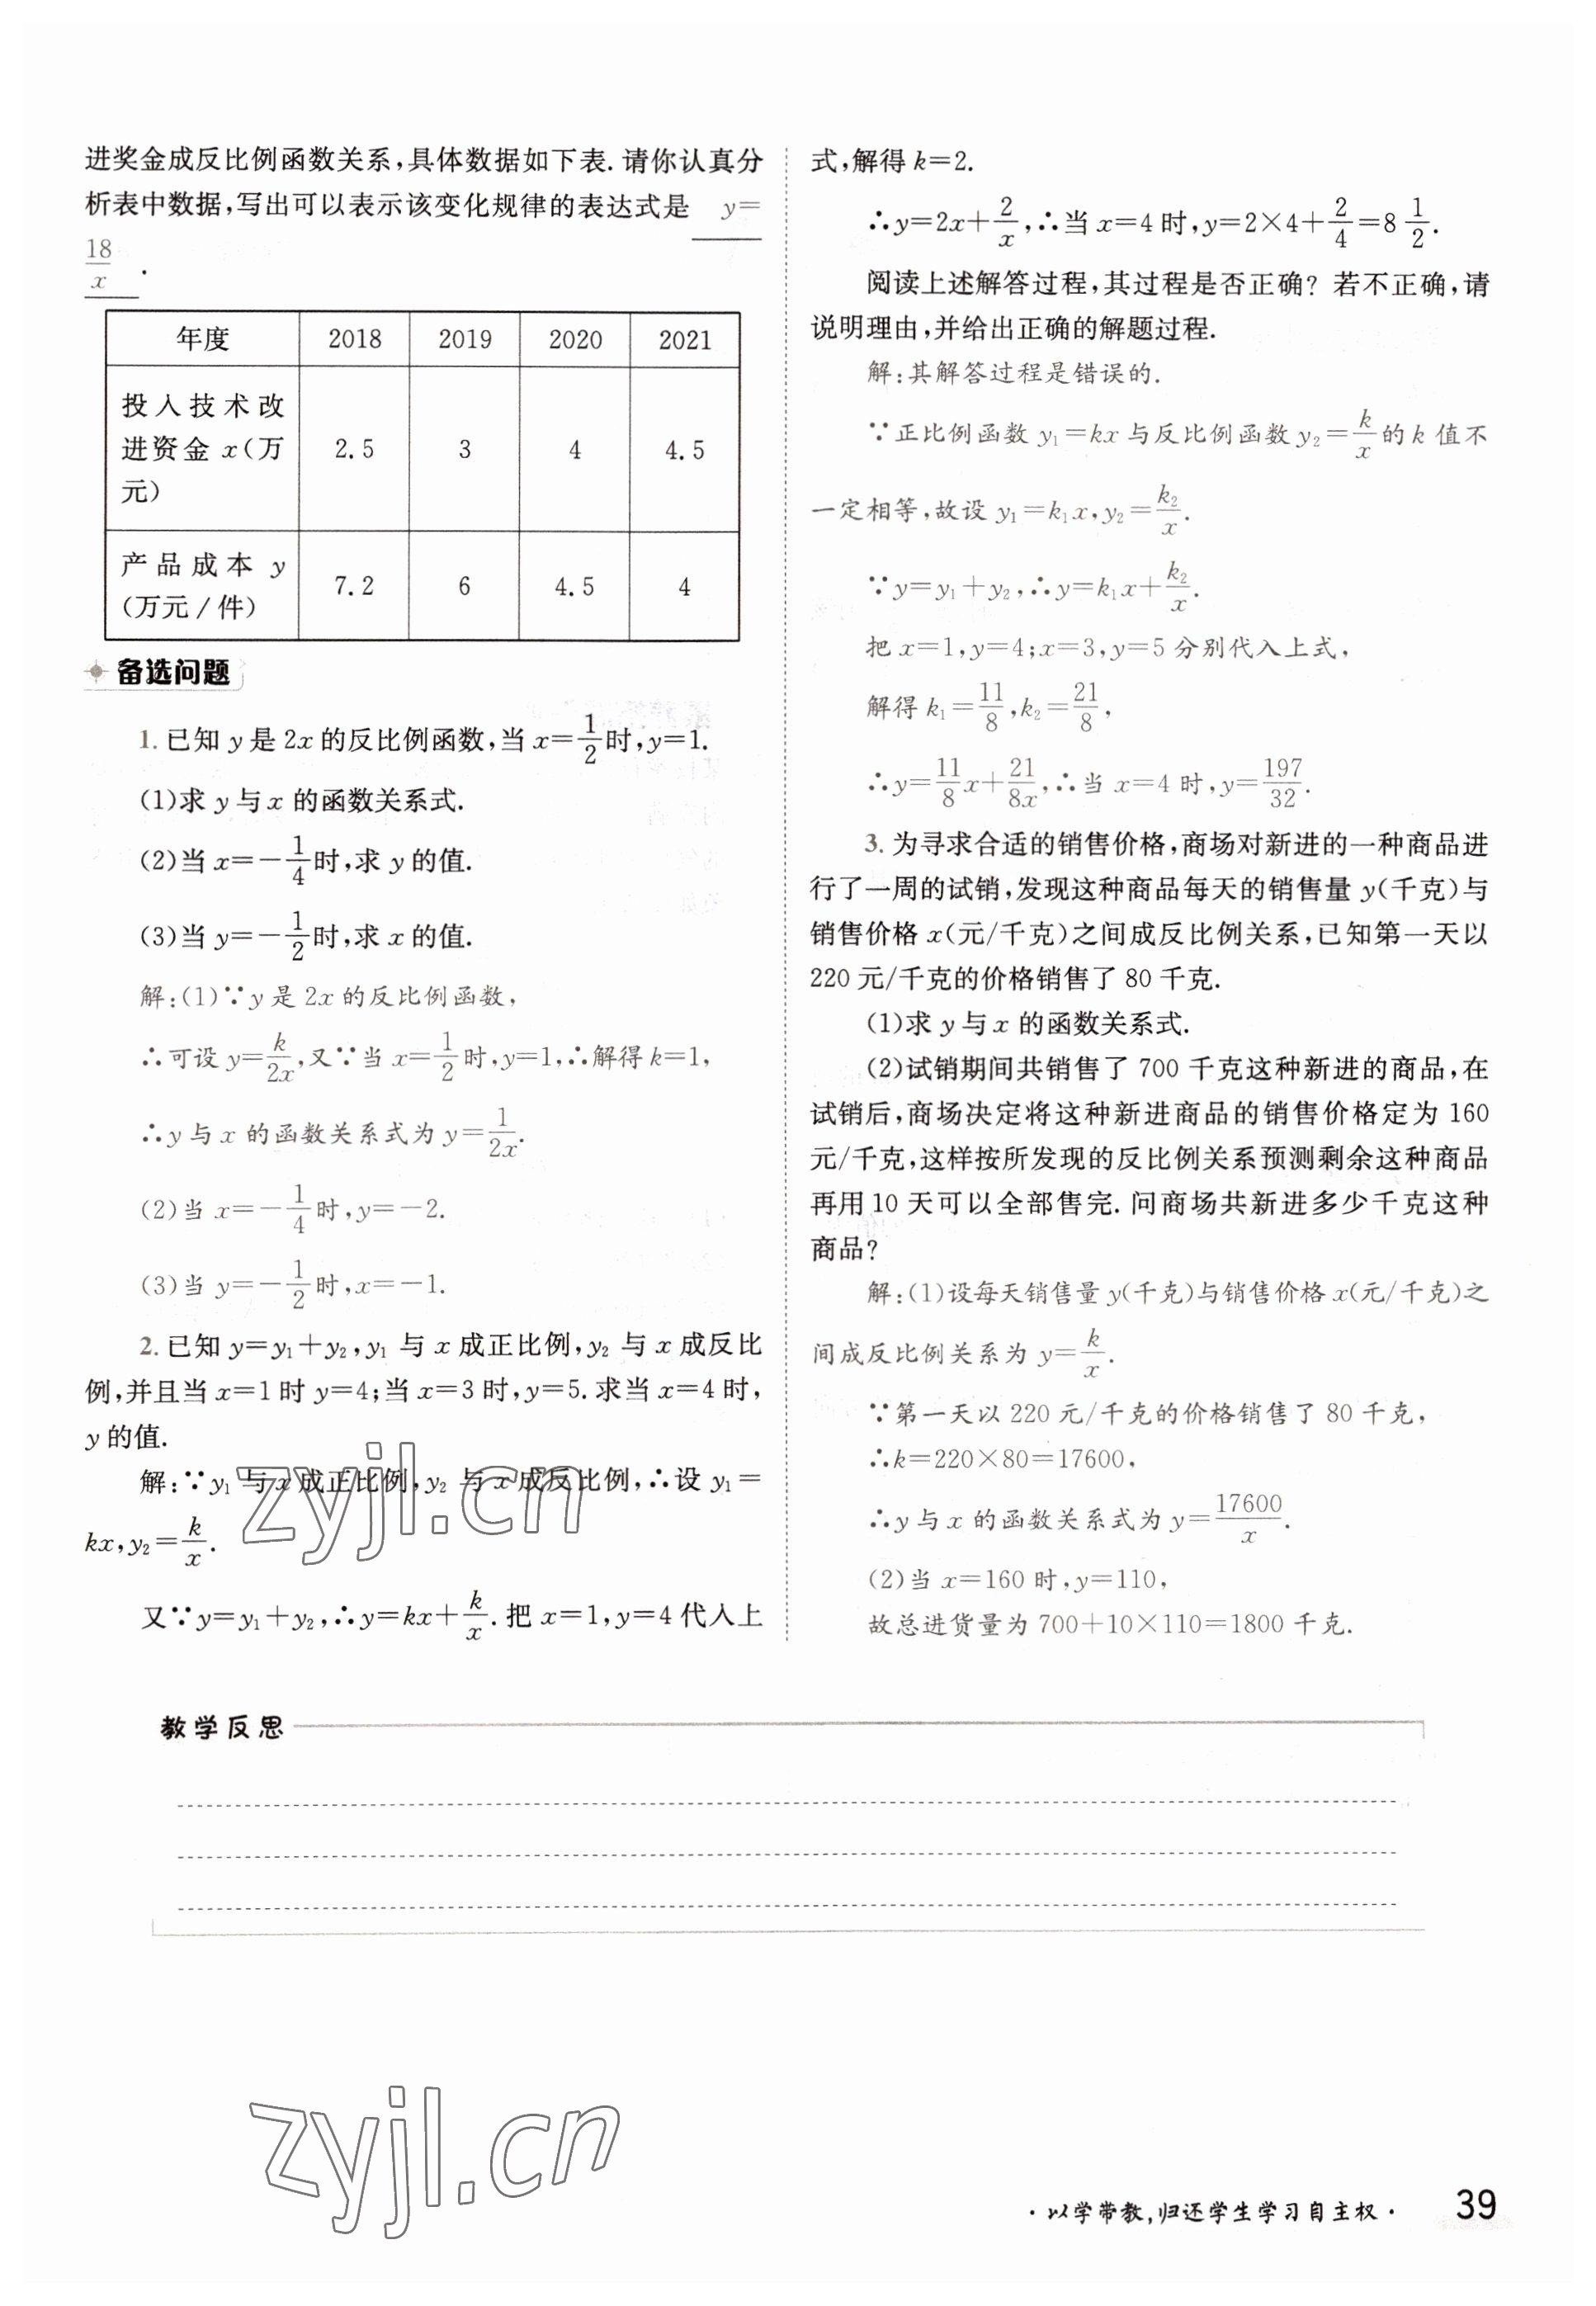 进奖金成反比例函数关系,具体数据如下表.请你认真分
析表中数据,写出可以表示该变化规律的表达式是 y=
18/x .
年度 2018 2019 2020 2021
投入技术改进资金 x(万元) 2.5 3 4 4.5
产品成本 y(万元/件) 7.2 6 4.5 4
备选问题
1. 已知 y 是 2x 的反比例函数,当 x=1/2时,y=1.
(1)求 y 与 x 的函数关系式.
(2)当 x=-1/4时,求 y 的值.
(3)当 y=-1/2时,求 x 的值.
解:(1)∵y 是 2x 的反比例函数,
∴可设 y=k/2x,又∵当 x=1/2时,y=1,∴解得 k=1,
∴y 与 x 的函数关系式为 y=1/2x.
(2)当 x=-1/4时,y=-2.
(3)当 y=-1/2时,x=-1.
2. 已知 y=y₁+y₂,y₁ 与 x 成正比例,y₂ 与 x 成反比
例,并且当 x=1 时 y=4;当 x=3 时,y=5.求当 x=4 时,
y 的值.
解:∵y₁ 与 x 成正比例,y₂ 与 x 成反比例,∴设 y₁=
kx,y₂=k/x.
又∵y=y₁+y₂,∴y=kx+k/x.把 x=1,y=4 代入上
式,解得 k=2.
∴y=2x+2/x,∴当 x=4 时,y=2×4+2/4=8 1/2.
阅读上述解答过程,其过程是否正确?若不正确,请
说明理由,并给出正确的解题过程.
解:其解答过程是错误的.
∵正比例函数 y₁=kx 与反比例函数 y₂=k/x的 k 值不
一定相等,故设 y₁=k₁x,y₂=k₂/x.
∵y=y₁+y₂,∴y=k₁x+k₂/x.
把 x=1,y=4;x=3,y=5 分别代入上式,
解得 k₁=11/8,k₂=21/8,
∴y=11/8x+21/8x,∴当 x=4 时,y=197/32.
3. 为寻求合适的销售价格,商场对新进的一种商品进
行了一周的试销,发现这种商品每天的销售量 y(千克)与
销售价格 x(元/千克)之间成反比例关系,已知第一天以
220 元/千克的价格销售了 80 千克.
(1)求 y 与 x 的函数关系式.
(2)试销期间共销售了 700 千克这种新进的商品,在
试销后,商场决定将这种新进商品的销售价格定为 160
元/千克,这样按所发现的反比例关系预测剩余这种商品
再用 10 天可以全部售完.问商场共新进多少千克这种
商品?
解:(1)设每天销售量 y(千克)与销售价格 x(元/千克)之
间成反比例关系为 y=k/x.
∵第一天以 220 元/千克的价格销售了 80 千克,
∴k=220×80=17600,
∴y 与 x 的函数关系式为 y=17600/x.
(2)当 x=160 时,y=110,
故总进货量为 700+10×110=1800 千克.
教学反思
zyjl.cn
zyjl.cn
·以学带教,归还学生学习自主权· 39